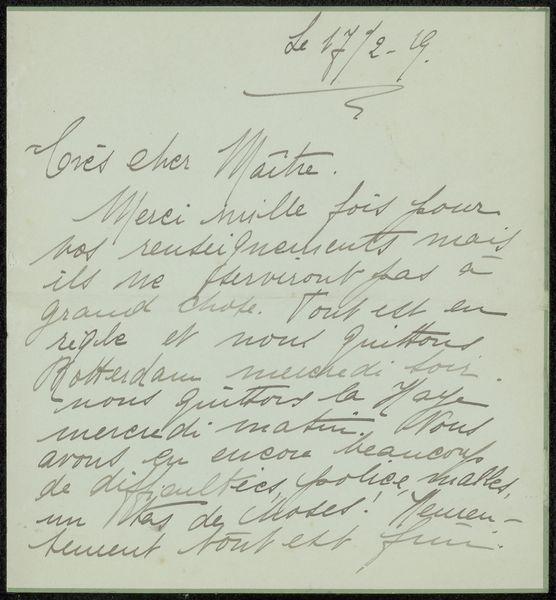 Le 17/2-19.
Très cher Maître.
Merci mille fois pour
vos renseignements mais
ils ne serviront pas à
grand chose. Tout est en
règle et nous quittons
Rotterdam mercredi soir.
nous quittons la Haye
mercredi matin. Nous
avons eu encore beaucoup
de difficultées, police, malles,
un tas de choses! Heureu-
sement tout est fini.